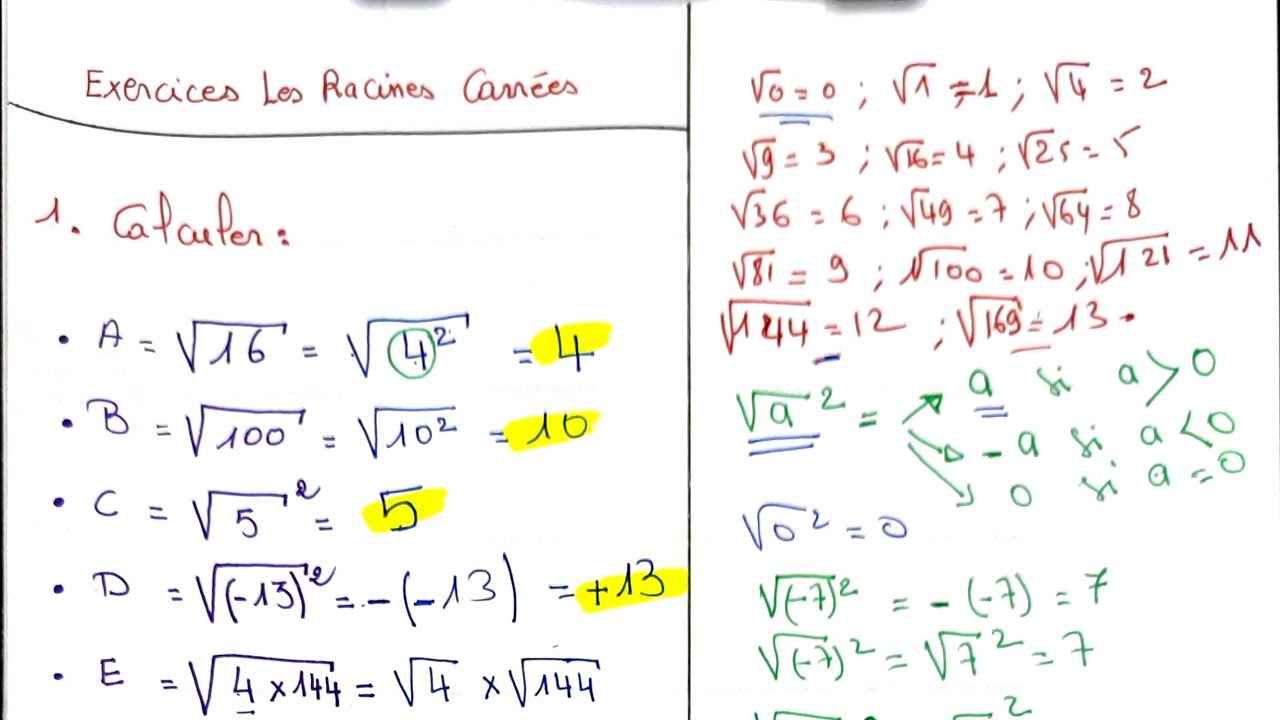 Exercices Les Racines Carrées
1. Calculer :
• A = √16 = √4² = 4
• B = √100 = √10² = 10
• C = √5² = 5
• D = √(-13)² = -(-13) = +13
• E = √4×144 = √4 × √144
√0 = 0 ; √1 = 1 ; √4 = 2
√9 = 3 ; √16 = 4 ; √25 = 5
√36 = 6 ; √49 = 7 ; √64 = 8
√81 = 9 ; √100 = 10 ; √121 = 11
√144 = 12 ; √169 = 13.
√a² = a si a > 0
-a si a < 0
0 si a = 0
√0² = 0
√(-7)² = -(-7) = 7
√(-7)² = √7² = 7